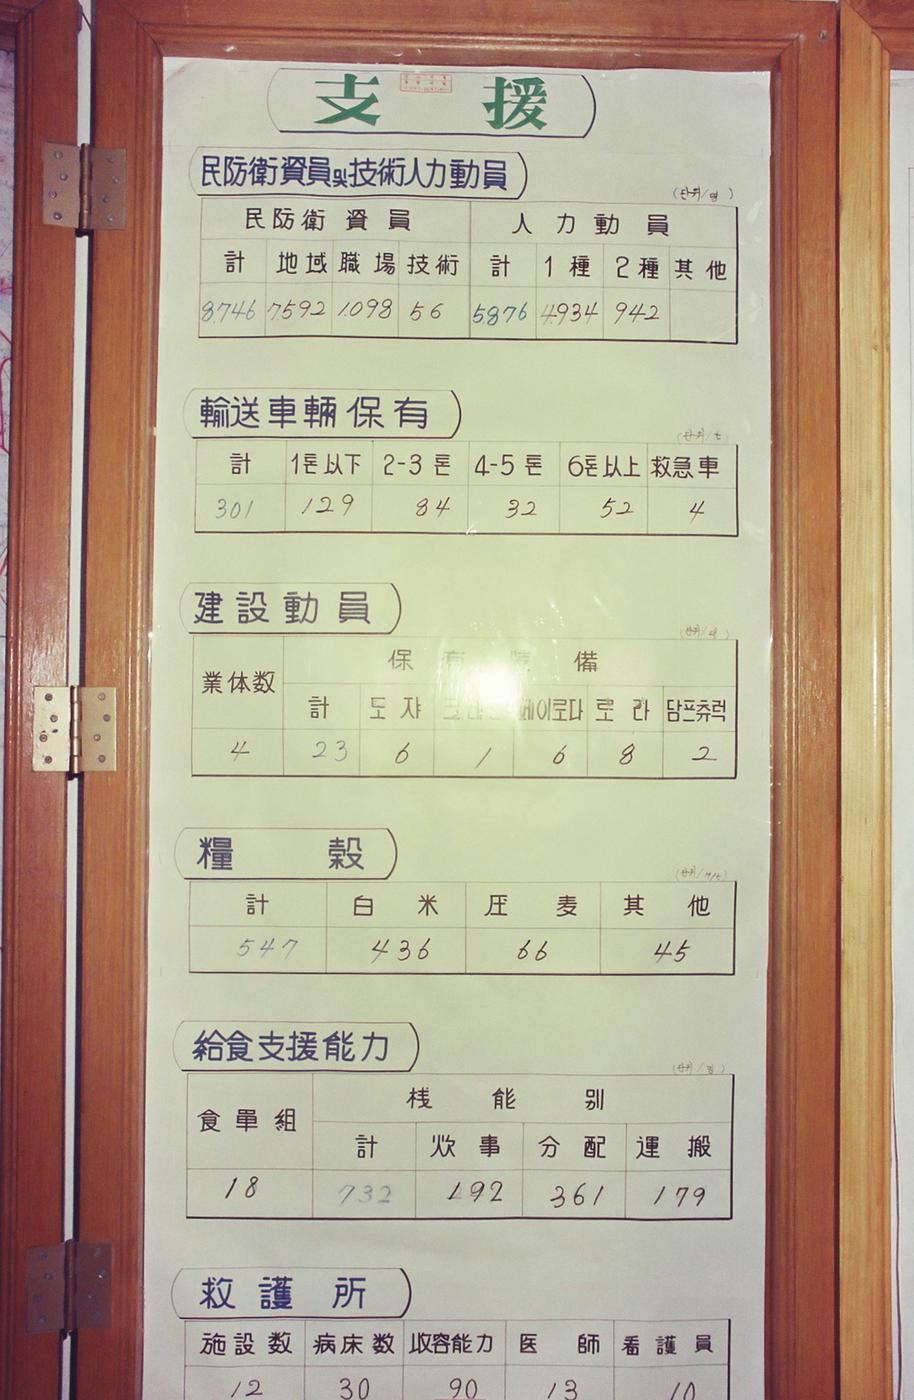 支 援
民防衛資員및技術人力動員
(단위/명)
民防衛資員 人力動員
計 地域 職場 技術 計 1種 2種 其他
8,746 7,592 1,098 56 5,876 4,934 942
輸送車輛保有
(단위/大)
計 1톤以下 2-3톤 4-5톤 6톤以上 救急車
301 129 84 32 52 4
建設動員
(단위/대)
業体数 保有 備
計 도쟈 페이로다 로라 담프츄럭
4 23 6 1 6 8 2
糧穀
計 白米 圧麦 其他
547 436 66 45
給食支援能力
(단위/명)
食單組 棧能別
計 炊事 分配 運搬
18 732 192 361 179
救護所
施設数 病床数 収容能力 医師 看護員
12 30 90 13 10